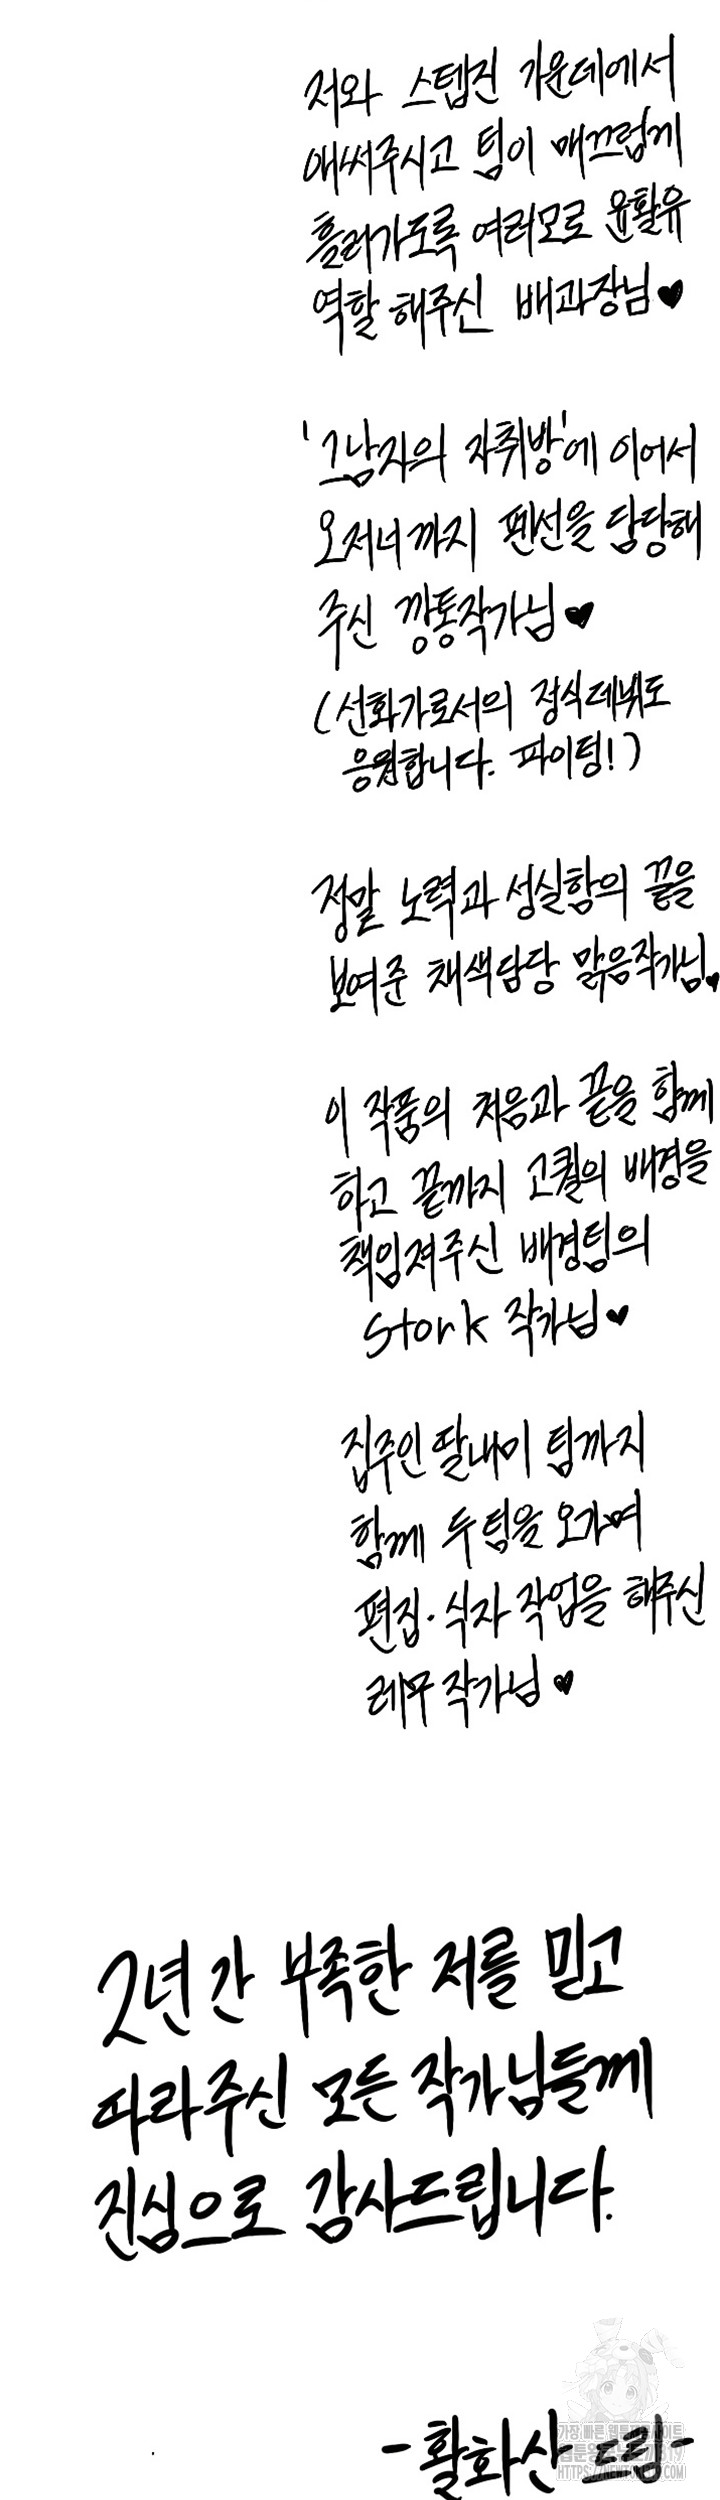 저와 스텝진 가운데에서
애써주시고 팀이 매끄럽게
흘러가도록 여러모로 윤활유
역할 해주신 배과장님♥
'그남자의 자취방'에 이어서
오저너까지 펜선을 담당해
주신 깡통작가님♥
(선화가로서의 정식데뷔도
응원합니다. 파이팅!)
정말 노력과 성실함의 끝을
보여준 채색담당 막음작가님♥
이 작품의 처음과 끝을 함께
하고 끝까지 고퀄의 배경을
책임져주신 배경팀의
Stork 작가님♥
집주인 딸내미 팀까지
함께 두 팀을 오가며
편집·식자 작업을 해주신
래무 작가님♥
2년간 부족한 저를 믿고
따라주신 모든 작가님들께
진심으로 감사드립니다.
-활화산 드림-
가장 빠른 웹툰